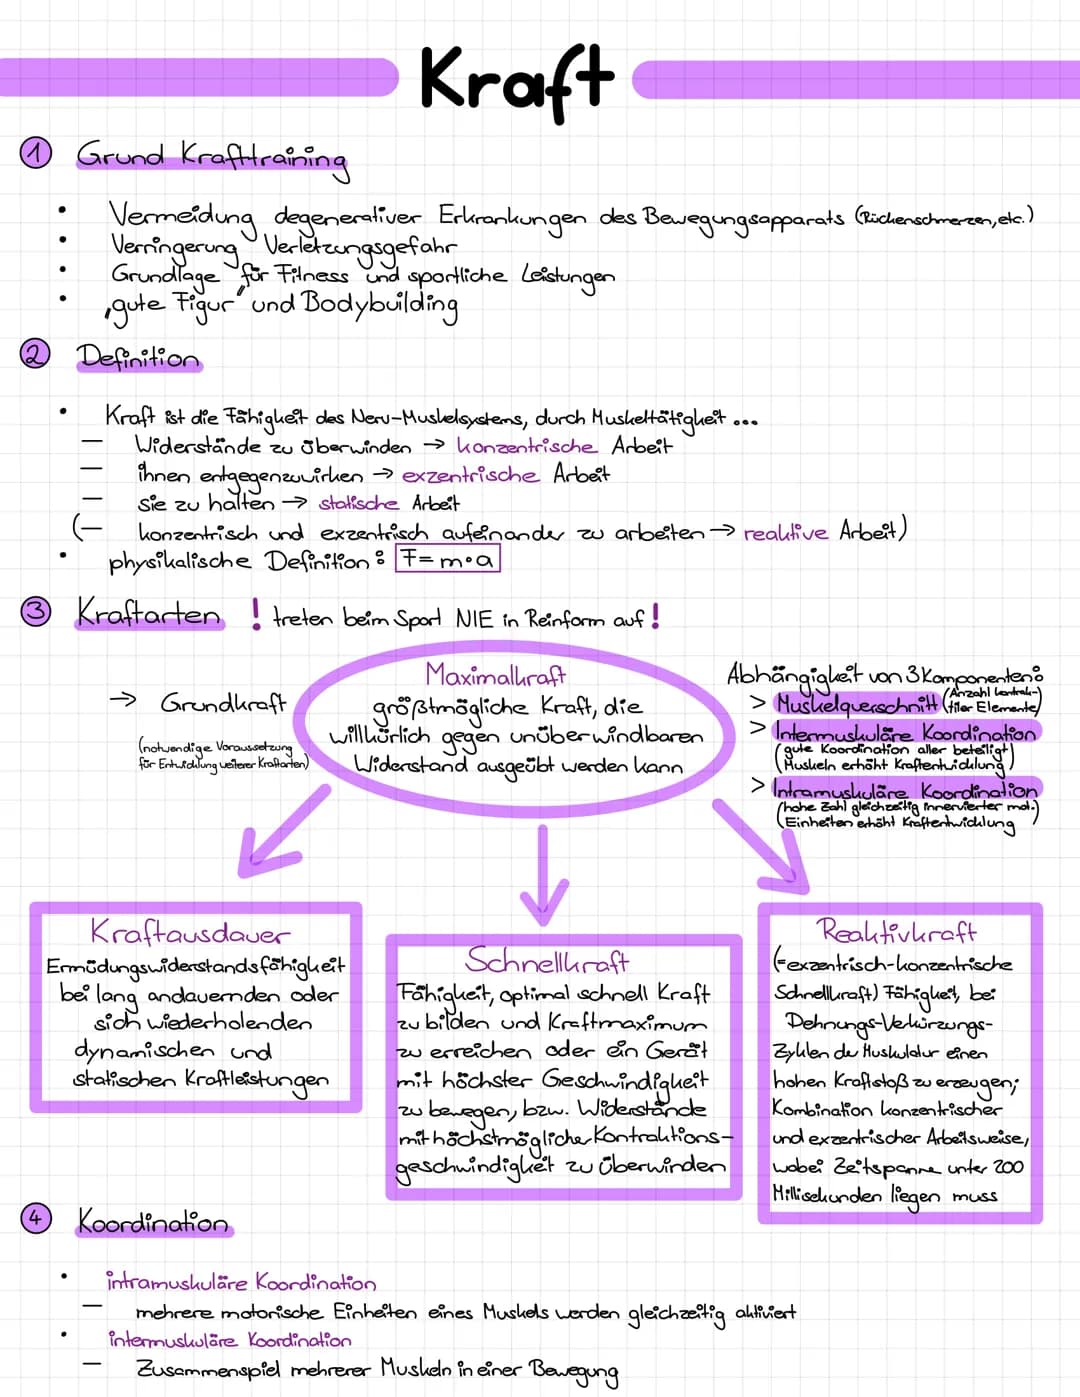 Kraft
1 Grund Krafttraining
• Vermeidung degenerativer Erkrankungen des Bewegungsapparats (Rückenschmerzen, etc.)
• Verringerung Verletzungsgefahr
• Grundlage für Fitness und sportliche Leistungen
• „gute Figur" und Bodybuilding
2 Definition
• Kraft ist die Fähigkeit des Nerv-Muskelsystems, durch Muskeltätigkeit ...
– Widerstände zu überwinden → konzentrische Arbeit
– ihnen entgegenzuwirken → exzentrische Arbeit
– sie zu halten → statische Arbeit
(– konzentrisch und exzentrisch aufeinander zu arbeiten → reaktive Arbeit)
• physikalische Definition: F = m • a
3 Kraftarten ! treten beim Sport NIE in Reinform auf !
→ Grundkraft
(notwendige Voraussetzung
für Entwicklung weiterer Kraftarten)
Maximalkraft
größtmögliche Kraft, die
willkürlich gegen unüberwindbaren
Widerstand ausgeübt werden kann
Abhängigkeit von 3 Komponenten:
> Muskelquerschnitt (Anzahl kontrak-
tiler Elemente)
> Intermuskuläre Koordination
(gute Koordination aller beteiligt
Muskeln erhöht Kraftentwicklung)
> Intramuskuläre Koordination
(hohe Zahl gleichzeitig innervierter mot.
Einheiten erhöht Kraftentwicklung)
Kraftausdauer
Ermüdungswiderstandsfähigkeit
bei lang andauernden oder
sich wiederholenden
dynamischen und
statischen Kraftleistungen
Schnellkraft
Fähigkeit, optimal schnell Kraft
zu bilden und Kraftmaximum
zu erreichen oder ein Gerät
mit höchster Geschwindigkeit
zu bewegen, bzw. Widerstände
mit höchstmöglicher Kontraktions-
geschwindigkeit zu überwinden
Reaktivkraft
(=exzentrisch-konzentrische
Schnellkraft) Fähigkeit, bei
Dehnungs-Verkürzungs-
Zyklen der Muskulatur einen
hohen Kraftstoß zu erzeugen;
Kombination konzentrischer
und exzentrischer Arbeitsweise,
wobei Zeitspanne unter 200
Millisekunden liegen muss
4 Koordination
• intramuskuläre Koordination
– mehrere motorische Einheiten eines Muskels werden gleichzeitig aktiviert
• intermuskuläre Koordination
– Zusammenspiel mehrerer Muskeln in einer Bewegung